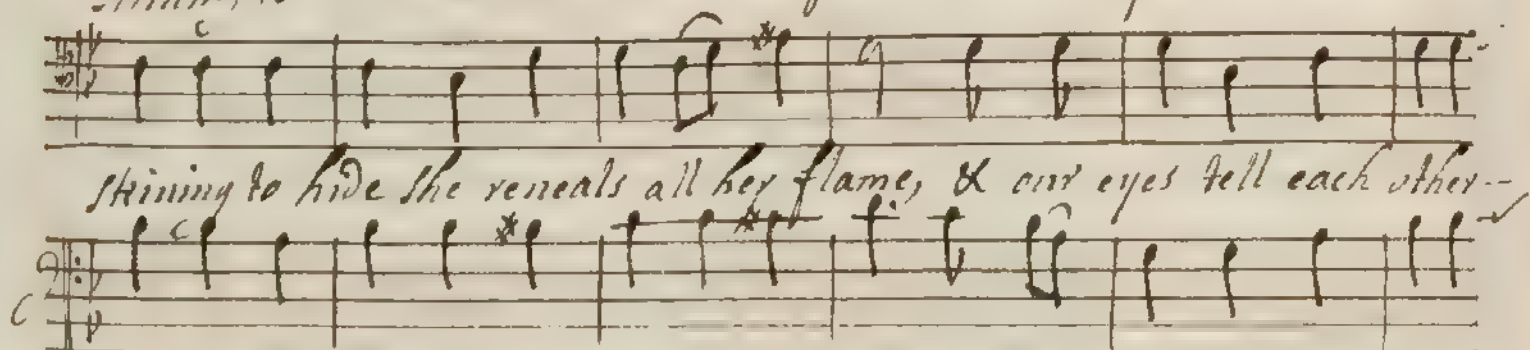 striving to hide she reveals all her flame, & our eyes tell each other